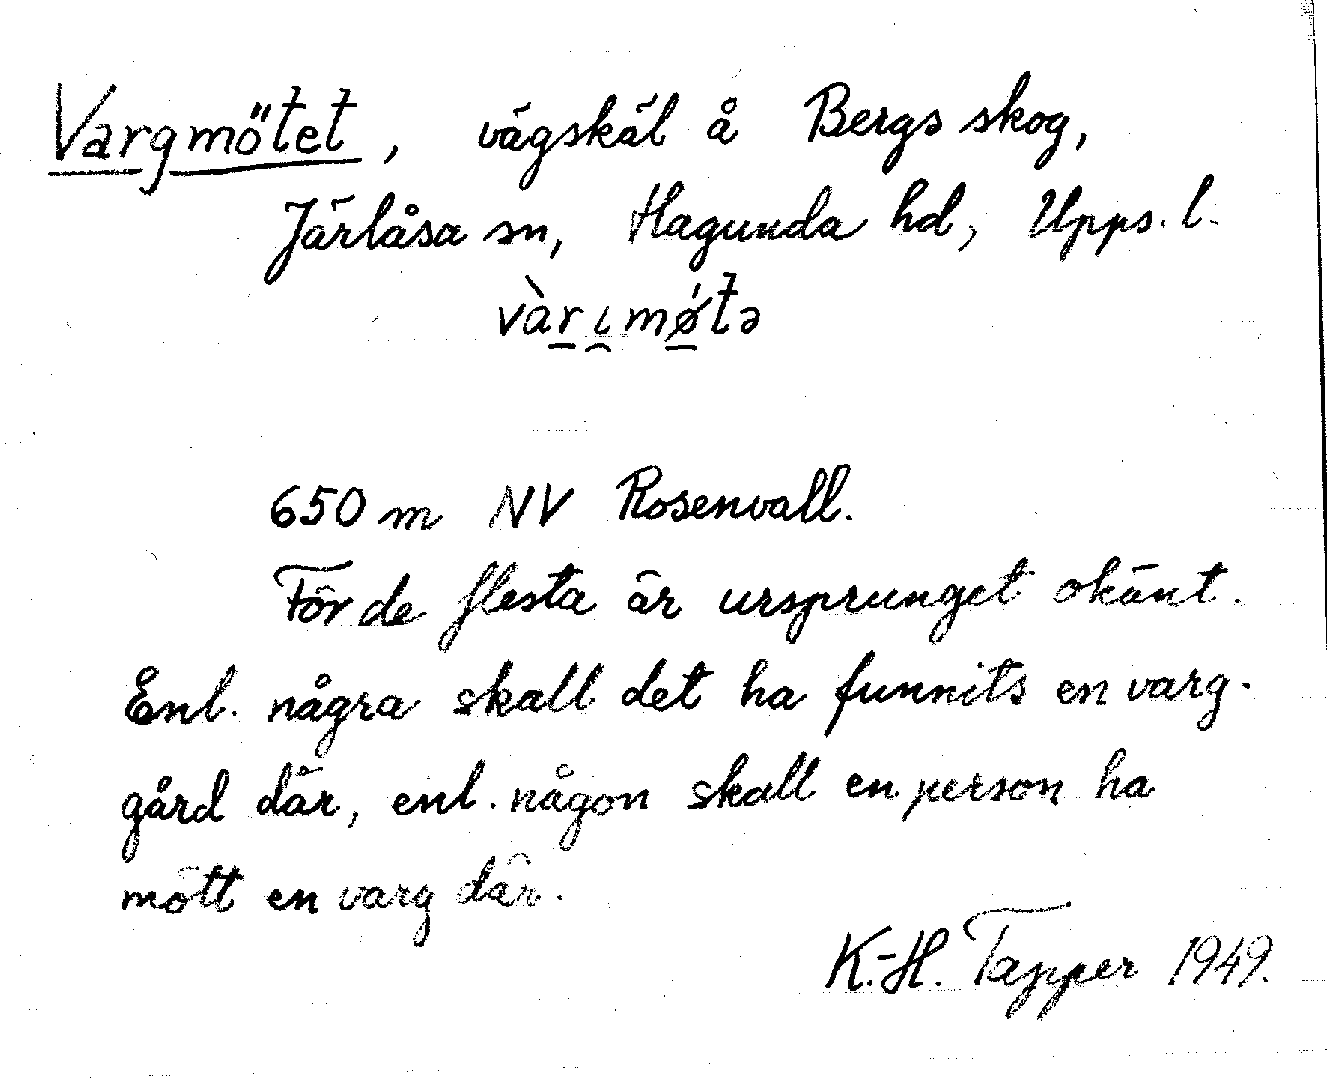 Vargmötet, vägskäl å Bergs skog,
Järlåsa sn, Hagunda hd, Upps. l.
vàrɩmǿtə
650 m NV Rosenvall.
För de flesta är ursprunget okänt.
Enl. några skall det ha funnits en varg-
gård där, enl. någon skall en person ha
mött en varg där.
K.-H. Tapper 1949.